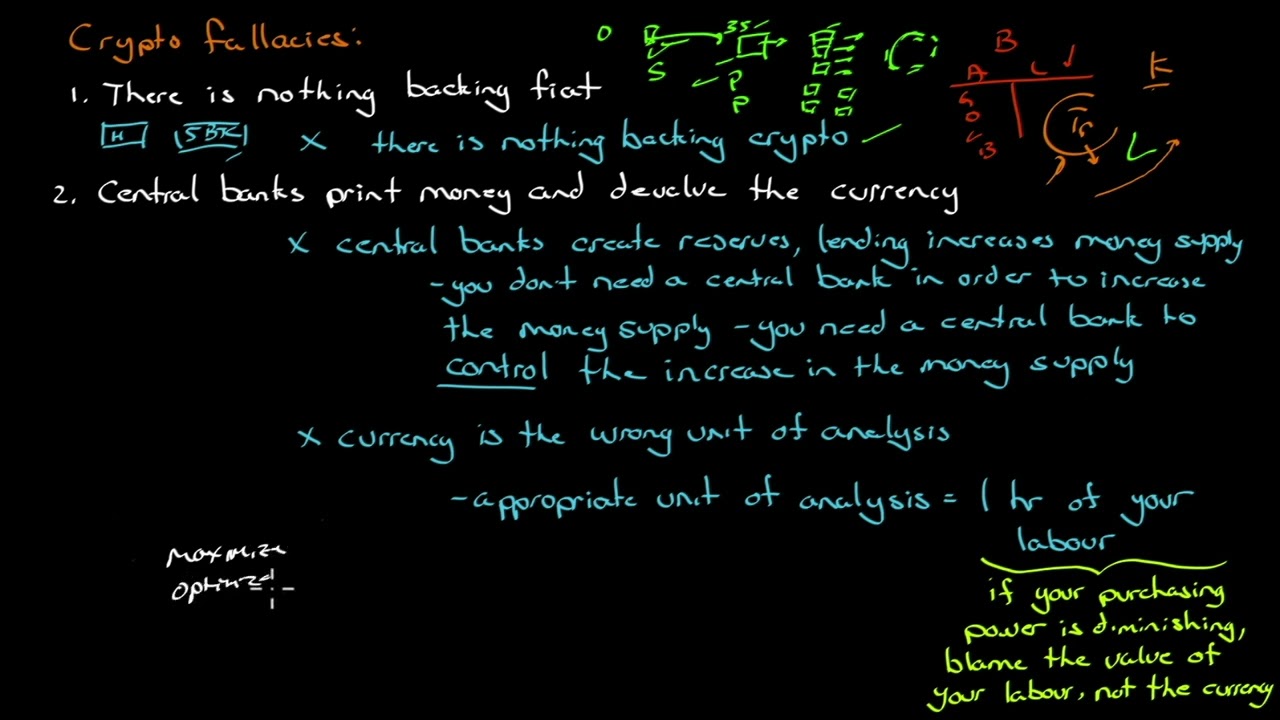 Crypto fallacies:
O B 35 B
S P A L K
P
1. There is nothing backing fiat
H 5BK X there is nothing backing crypto
Tr L
2. Central banks print money and devalue the currency
X central banks create reserves, lending increases money supply
-you don't need a central bank in order to increase
the money supply -you need a central bank to
control the increase in the money supply
X currency is the wrong unit of analysis
-appropriate unit of analysis = 1 hr of your
labour
maximize
optimize
if your purchasing
power is diminishing,
blame the value of
your labour, not the currency